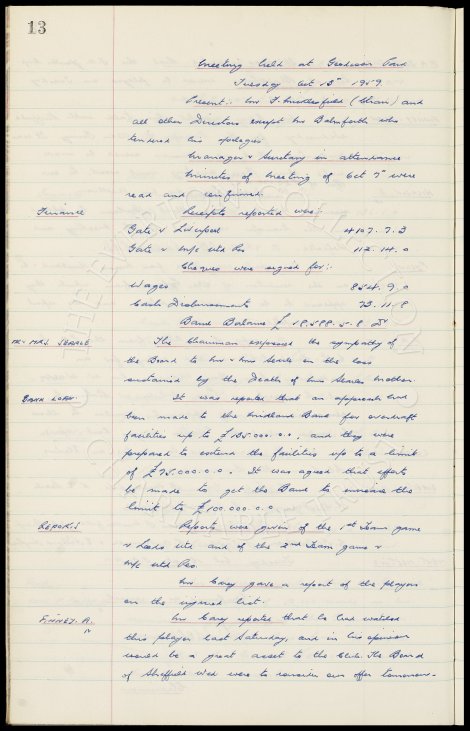 13
Meeting held at Goodison Park
Tuesday Oct 13th 1959.
Present:- Mr F. Micklesfield (Chair) and
all other Directors except Mr Balmforth who
tendered his apologies
Manager & Secretary in attendance
Minutes of Meeting of Oct 7th were
read and confirmed.
Finance Receipts reported were:-
Gate v Liverpool 4107. 7. 3
Gate v M/c Utd Res 112. 14. 0
Cheques were signed for:-
Wages 854. 9. 0
Cash Disbursements 73. 11. 8
Bank Balance £ 58.588. 5. 8. Dr
MR & MRS. SEARLE The Chairman expressed the sympathy of
the Board to Mr & Mrs Searle in the loss
sustained by the Death of Mrs Searles Mother.
BANK LOAN. It was reported that an approach had
been made to the Midland Bank for overdraft
facilities up to £125.000.0.0., and they were
prepared to extend the facilities up to a limit
of £75.000.0.0. It was agreed that efforts
be made to get the Bank to increase the
limit to £100.000.0.0
REPORTS Reports were given of the 1st Team game
v Leeds Utd and of the 2nd Team game v
M/c Utd Res.
Mr Carey gave a report of the players
on the injured list.
FINNEY. A. Mr Carey reported that he had watched
this player last Saturday, and in his opinion
would be a great asset to the Club. The Board
of Sheffield Wed were to consider our offer tomorrow.
THE EVERTON COLLECTION